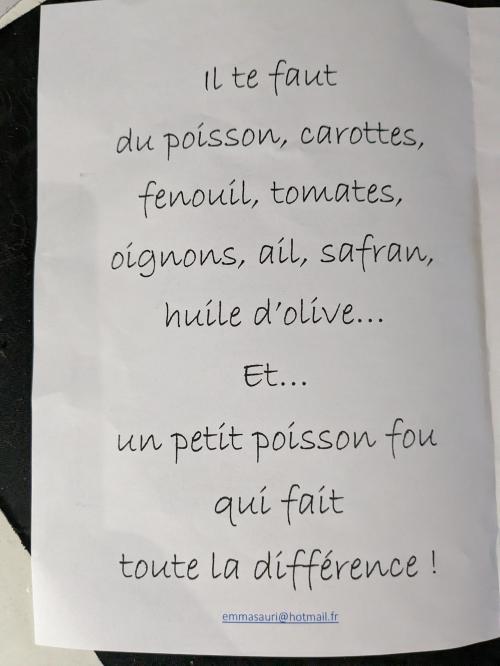 Il te faut
du poisson, carottes,
fenouil, tomates,
oignons, ail, safran,
huile d'olive...
Et...
un petit poisson fou
qui fait
toute la différence !
emmasauri@hotmail.fr